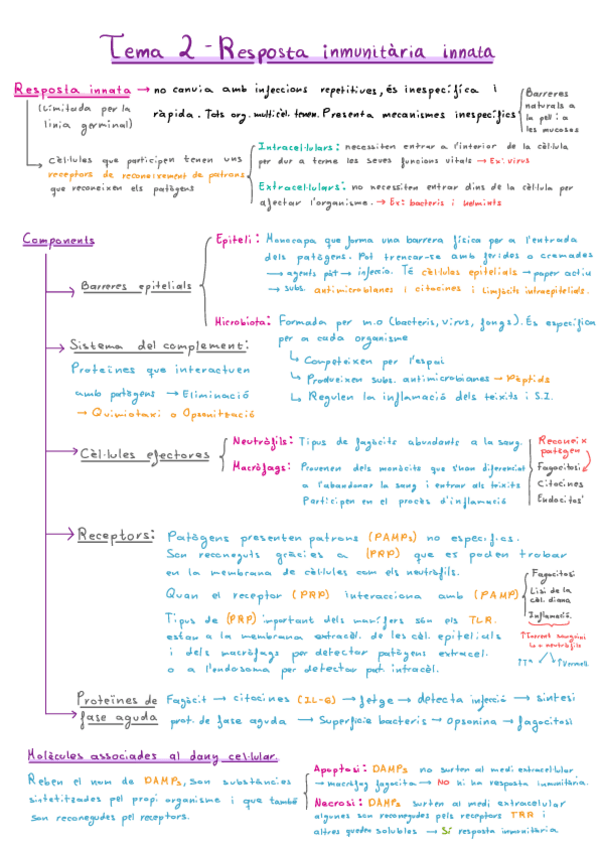 Tema 2 - Resposta inmunitària innata
Resposta innata → no canvia amb infeccions repetitives, és inespecífica i
(Limitada per la
linia germinal)
ràpida. Tots org. multicèl. tenen. Presenta mecanismes inespecífics
Barreres
naturals a
la pell i a
les mucoses
Cèl·lules que participen tenen uns
receptors de reconeixement de patrons
que reconeixen els patògens
Intracel·lulars: necessiten entrar a l'interior de la cèl·lula
per dur a terme les seves funcions vitals → Ex: virus
Extracel·lulars: no necessiten entrar dins de la cèl·lula per
afectar l'organisme. → Ex: bacteris i helmints
Components
Barreres epitelials
Epiteli: Monocapa que forma una barrera física per a l'entrada
dels patògens. Pot trencar-se amb ferides o cremades
→ agents pat → infecció. Té cèl·lules epitelials → paper actiu
→ subs. antimicrobianes i citocines i limfòcits intraepitelials.
Microbiota: Formada per m.o (bacteris, virus, fongs). És específica
per a cada organisme
↳ Competeixen per l'espai
↳ Produeixen subs. antimicrobianes → Pèptids
↳ Regulen la inflamació dels teixits i S.I.
Sistema del complement:
Proteïnes que interactuen
amb patògens → Eliminació
→ Quimiotaxi o Opsonització
Cèl·lules efectores
Neutròfils: Tipus de fagòcits abundants a la sang.
Macròfags: Provenen dels monòcits que s'han diferenciat
a l'abandonar la sang i entrar als teixits
Participen en el procés d'inflamació
Reconeix
patogen
Fagocitosi
Citocines
Endocitos'
Receptors: Patògens presenten patrons (PAMPs) no específics.
Son reconeguts gràcies a (PRP) que es poden trobar
en la membrana de cèl·lules com els neutròfils.
Quan el receptor (PRP) interacciona amb (PAMP)
Fagocitosi
Lisi de la
cèl. diana
Inflamació.
↑Torrent sanguini
la neutròfils
↑Tª ↑Vermell
Tipus de (PRP) important dels mamífers són els TLR.
estan a la membrana extracèl. de les cèl. epitelials
i dels macròfags per detectar patògens extracel.
o a l'endosoma per detectar pat. intracèl.
Proteïnes de
fase aguda
Fagòcit → citocines (IL-6) → fetge → detecta infecció → síntesi
prot. de fase aguda → Superfície bacteris → Opsonina → fagocitosi
Molècules associades al dany cel·lular.
Reben el nom de DAMPs, son substàncies
sintetitzades pel propi organisme i que també
són reconegudes pel receptors.
Apoptosi: DAMPs no surten al medi extracel·lular
→ macròfag fagocita → NO hi ha resposta inmunitària.
Necrosi: DAMPs surten al medi extracelular
algunes son reconegudes pels receptors TRR i
altres queden solubles → Sí resposta inmunitària